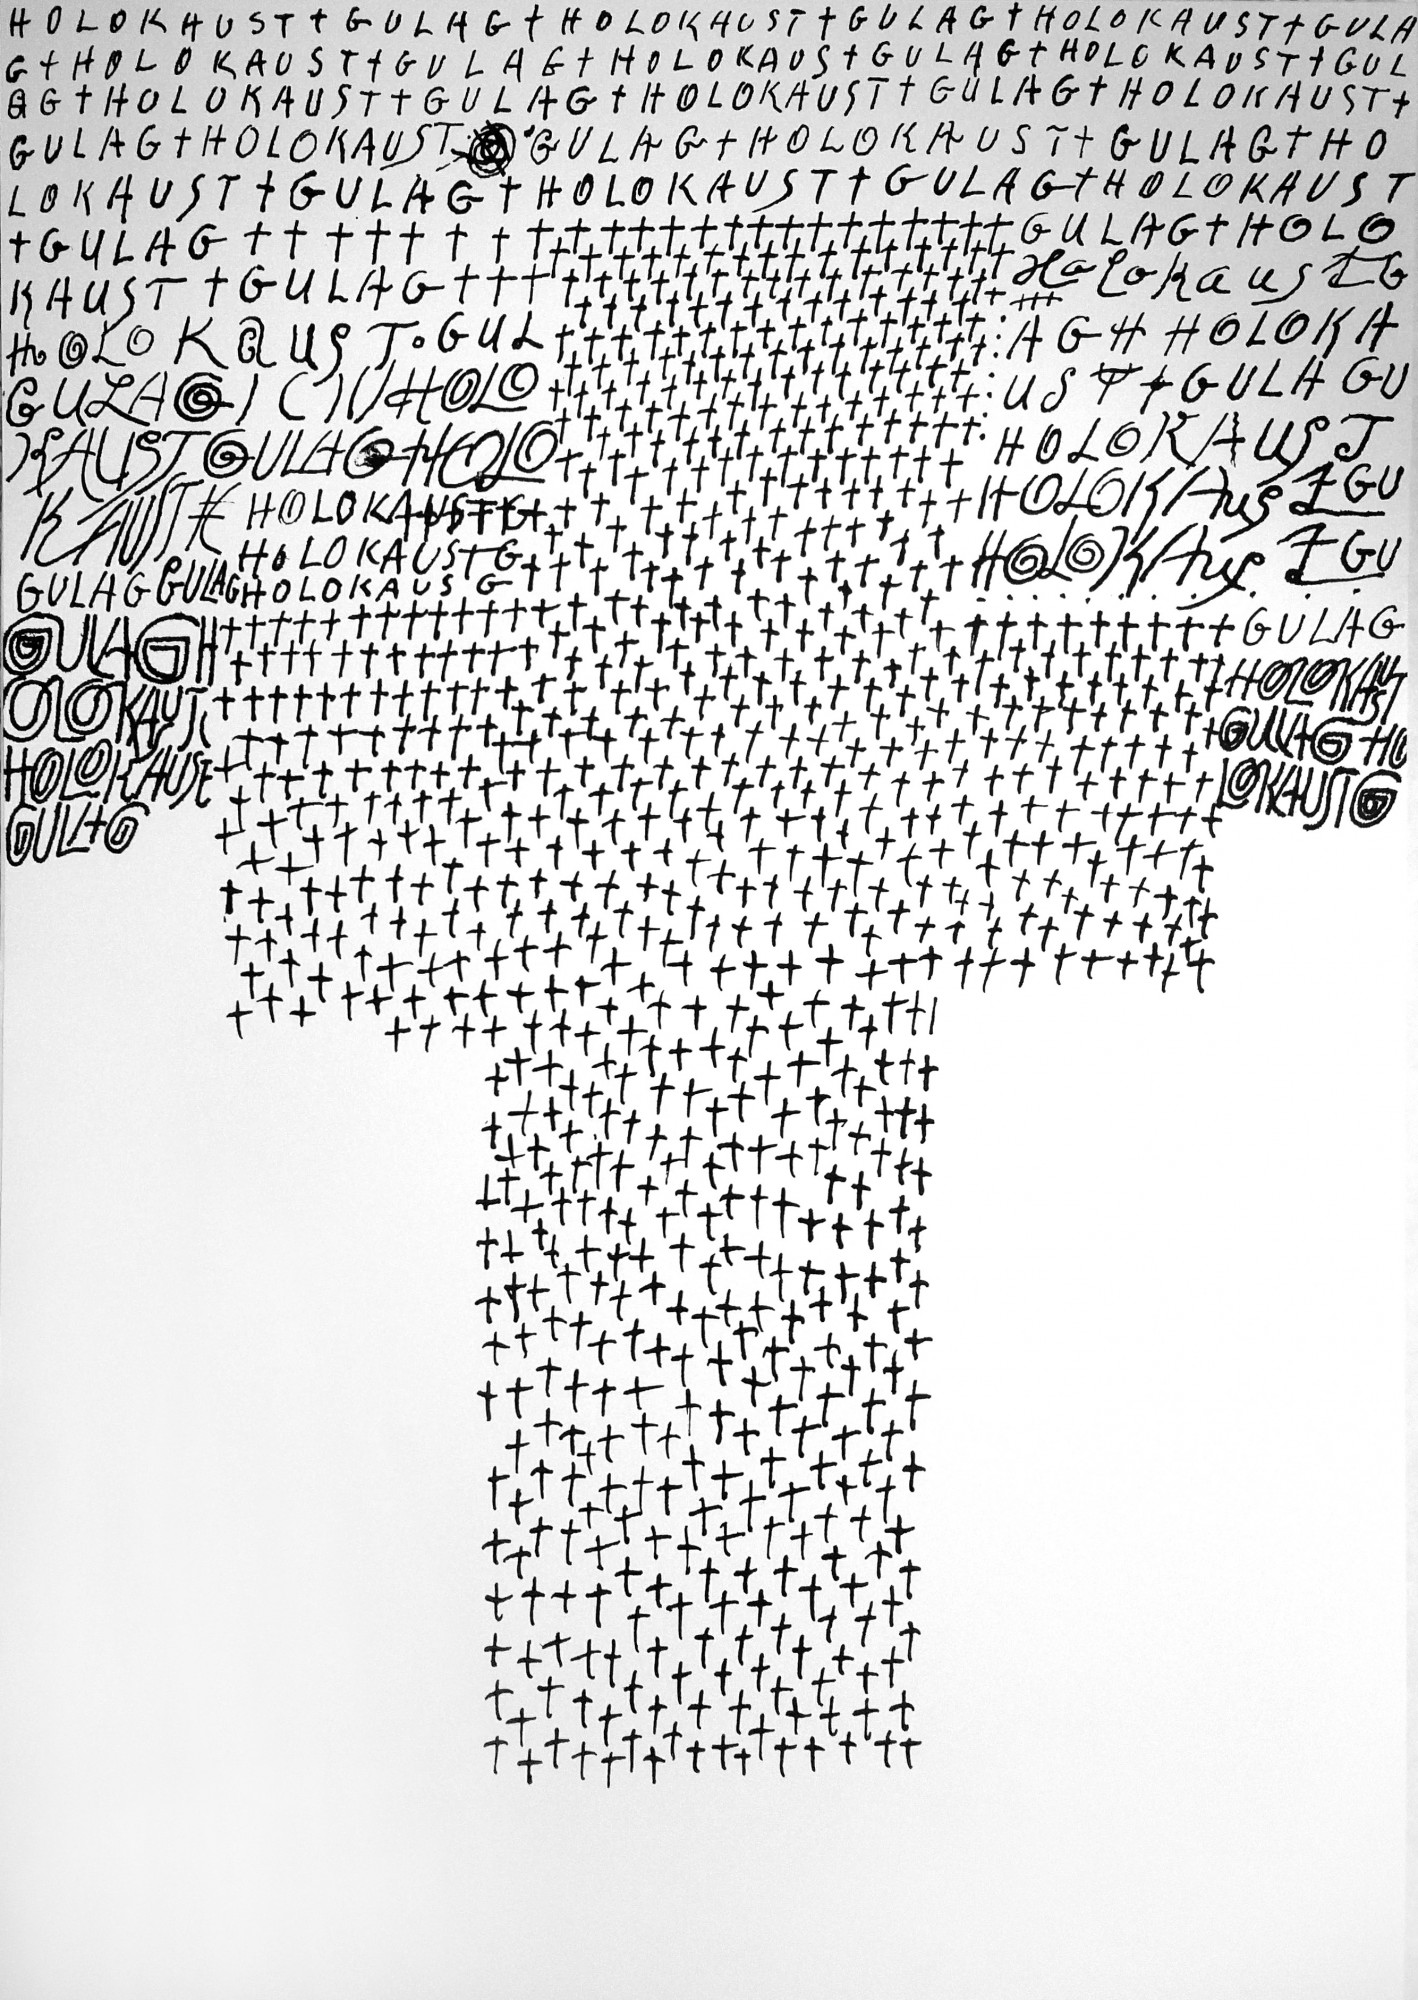 HOLOKAUST†GULAG†HOLOKAUST†GULAG†HOLOKAUST†GULA
G†HOLOKAUST†GULAG†HOLOKAUS†GULAG†HOLOKAUST†GUL
AG†HOLOKAUST†GULAG†HOLOKAUST†GULAG†HOLOKAUST†
GULAG†HOLOKAUST GULAG†HOLOKAUST†GULAG†HO
LOKAUST†GULAG†HOLOKAUST†GULAG†HOLOKAUST
†GULAG †††††††††††††††††††††† GULAG†HOLO
KAUST†GULAG††† Holokaust G
HOLOKAUST.GUL AGH HOLOKA
GULAG HOLO UST†GULAGU
KAUSTGULAGHOLO HOLOKAUST
KAUST HOLOKAUSTG HOLOKAUSTGU
HOLOKAUSTG HOLOKAUSTGU
GULAG GULAG HOLOKAUSG
GULAGH GULAG
OLOKAUST HOLOKAUST
HOLOKAUSE GULAG HO
GULAG LOKAUSTG